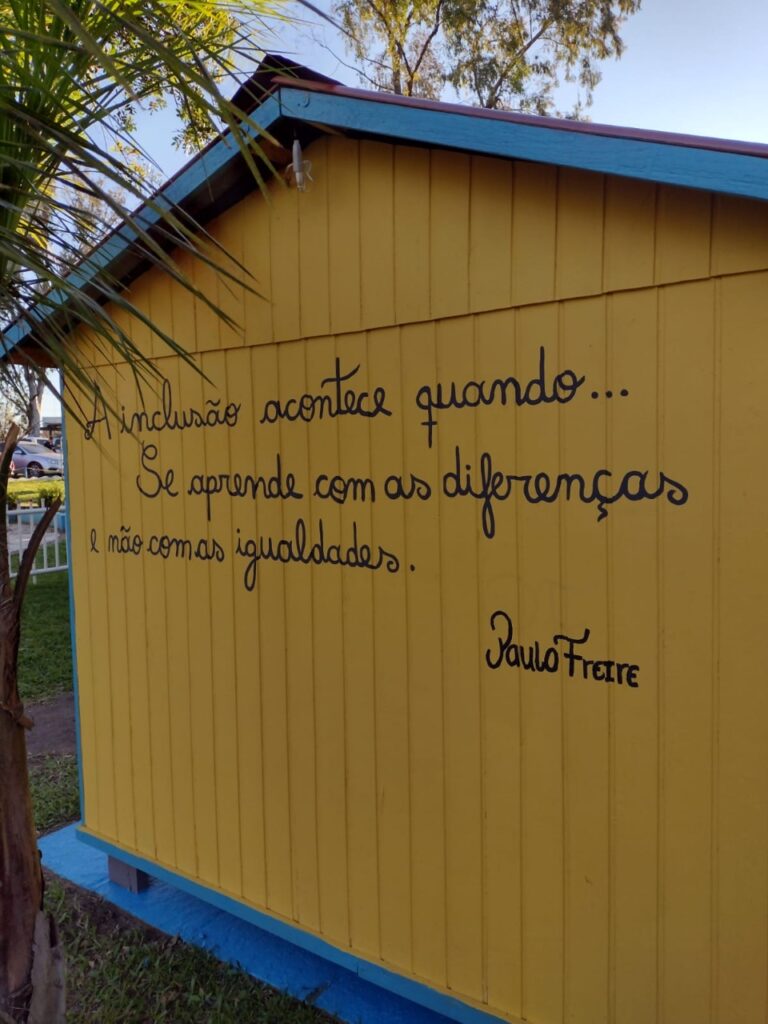 A inclusão acontece quando...
Se aprende com as diferenças
e não com as igualdades.
Paulo Freire